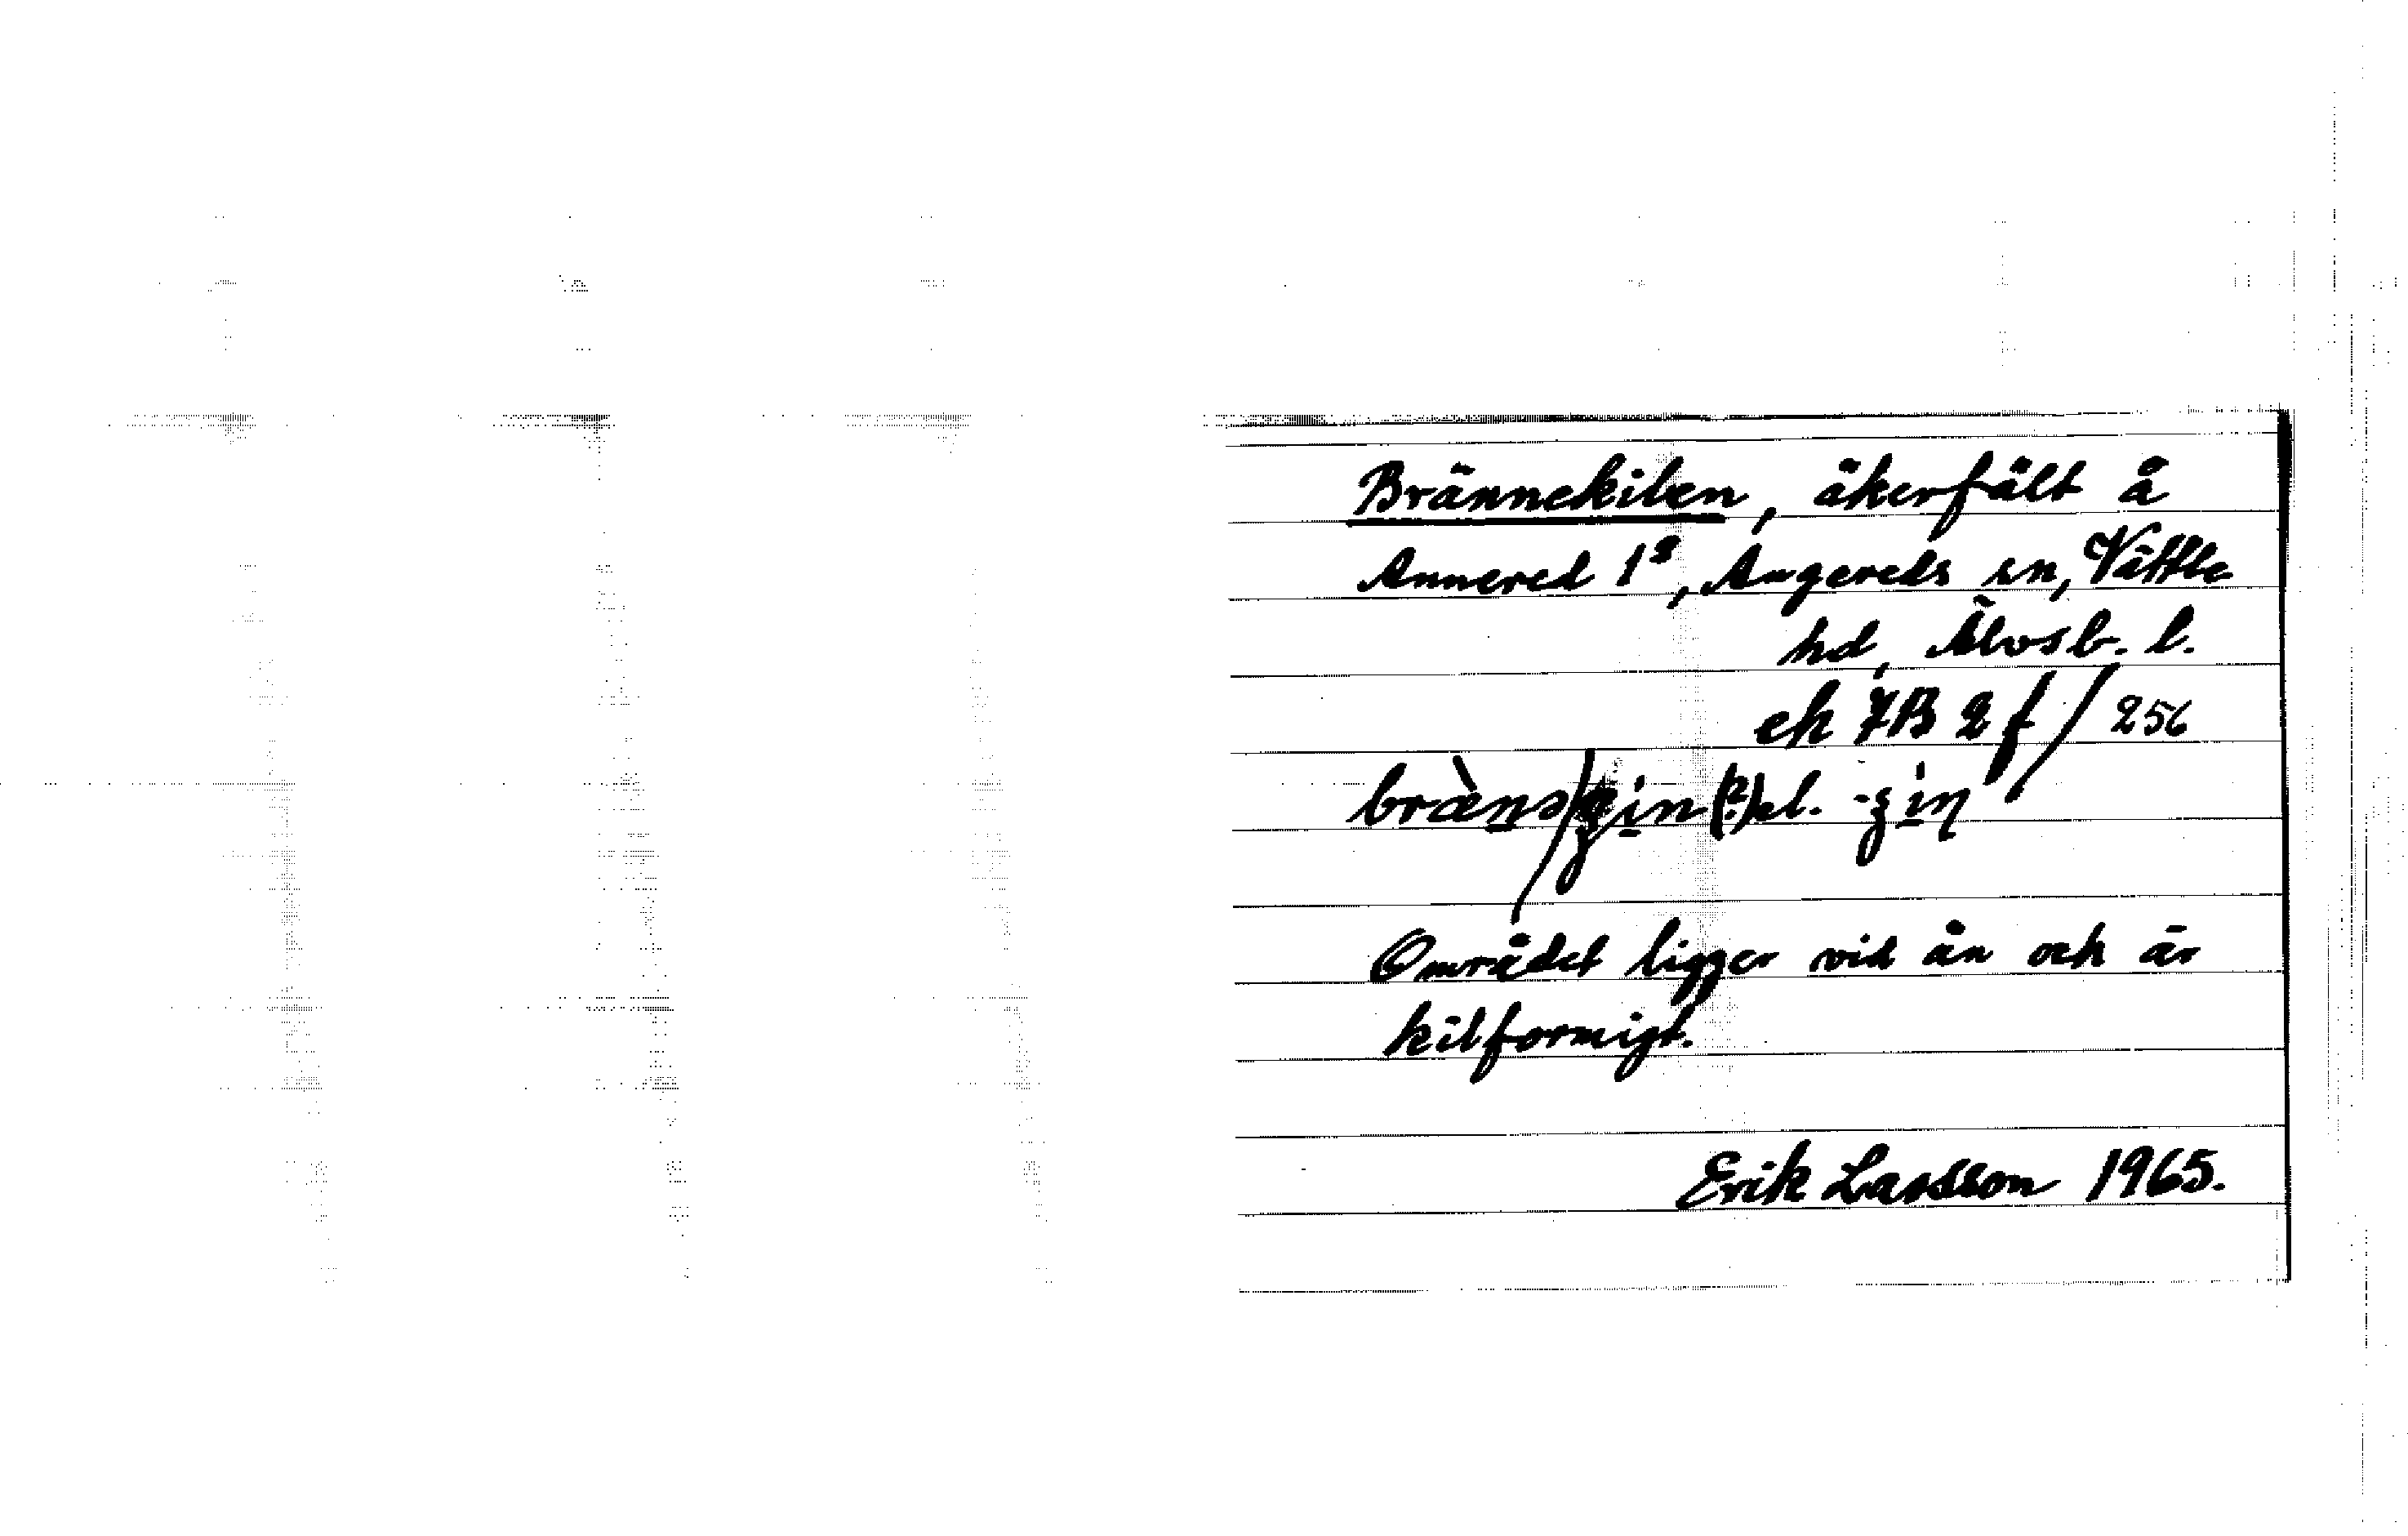 Brännekilen, åkerfält å
Annered 1³, Angereds sn, Vättle
hd, Älvsb. l.
ek 7B 2 f / 256
(?) el.
Området ligger vid ån och är
kilformigt.
Erik Larsson 1965.